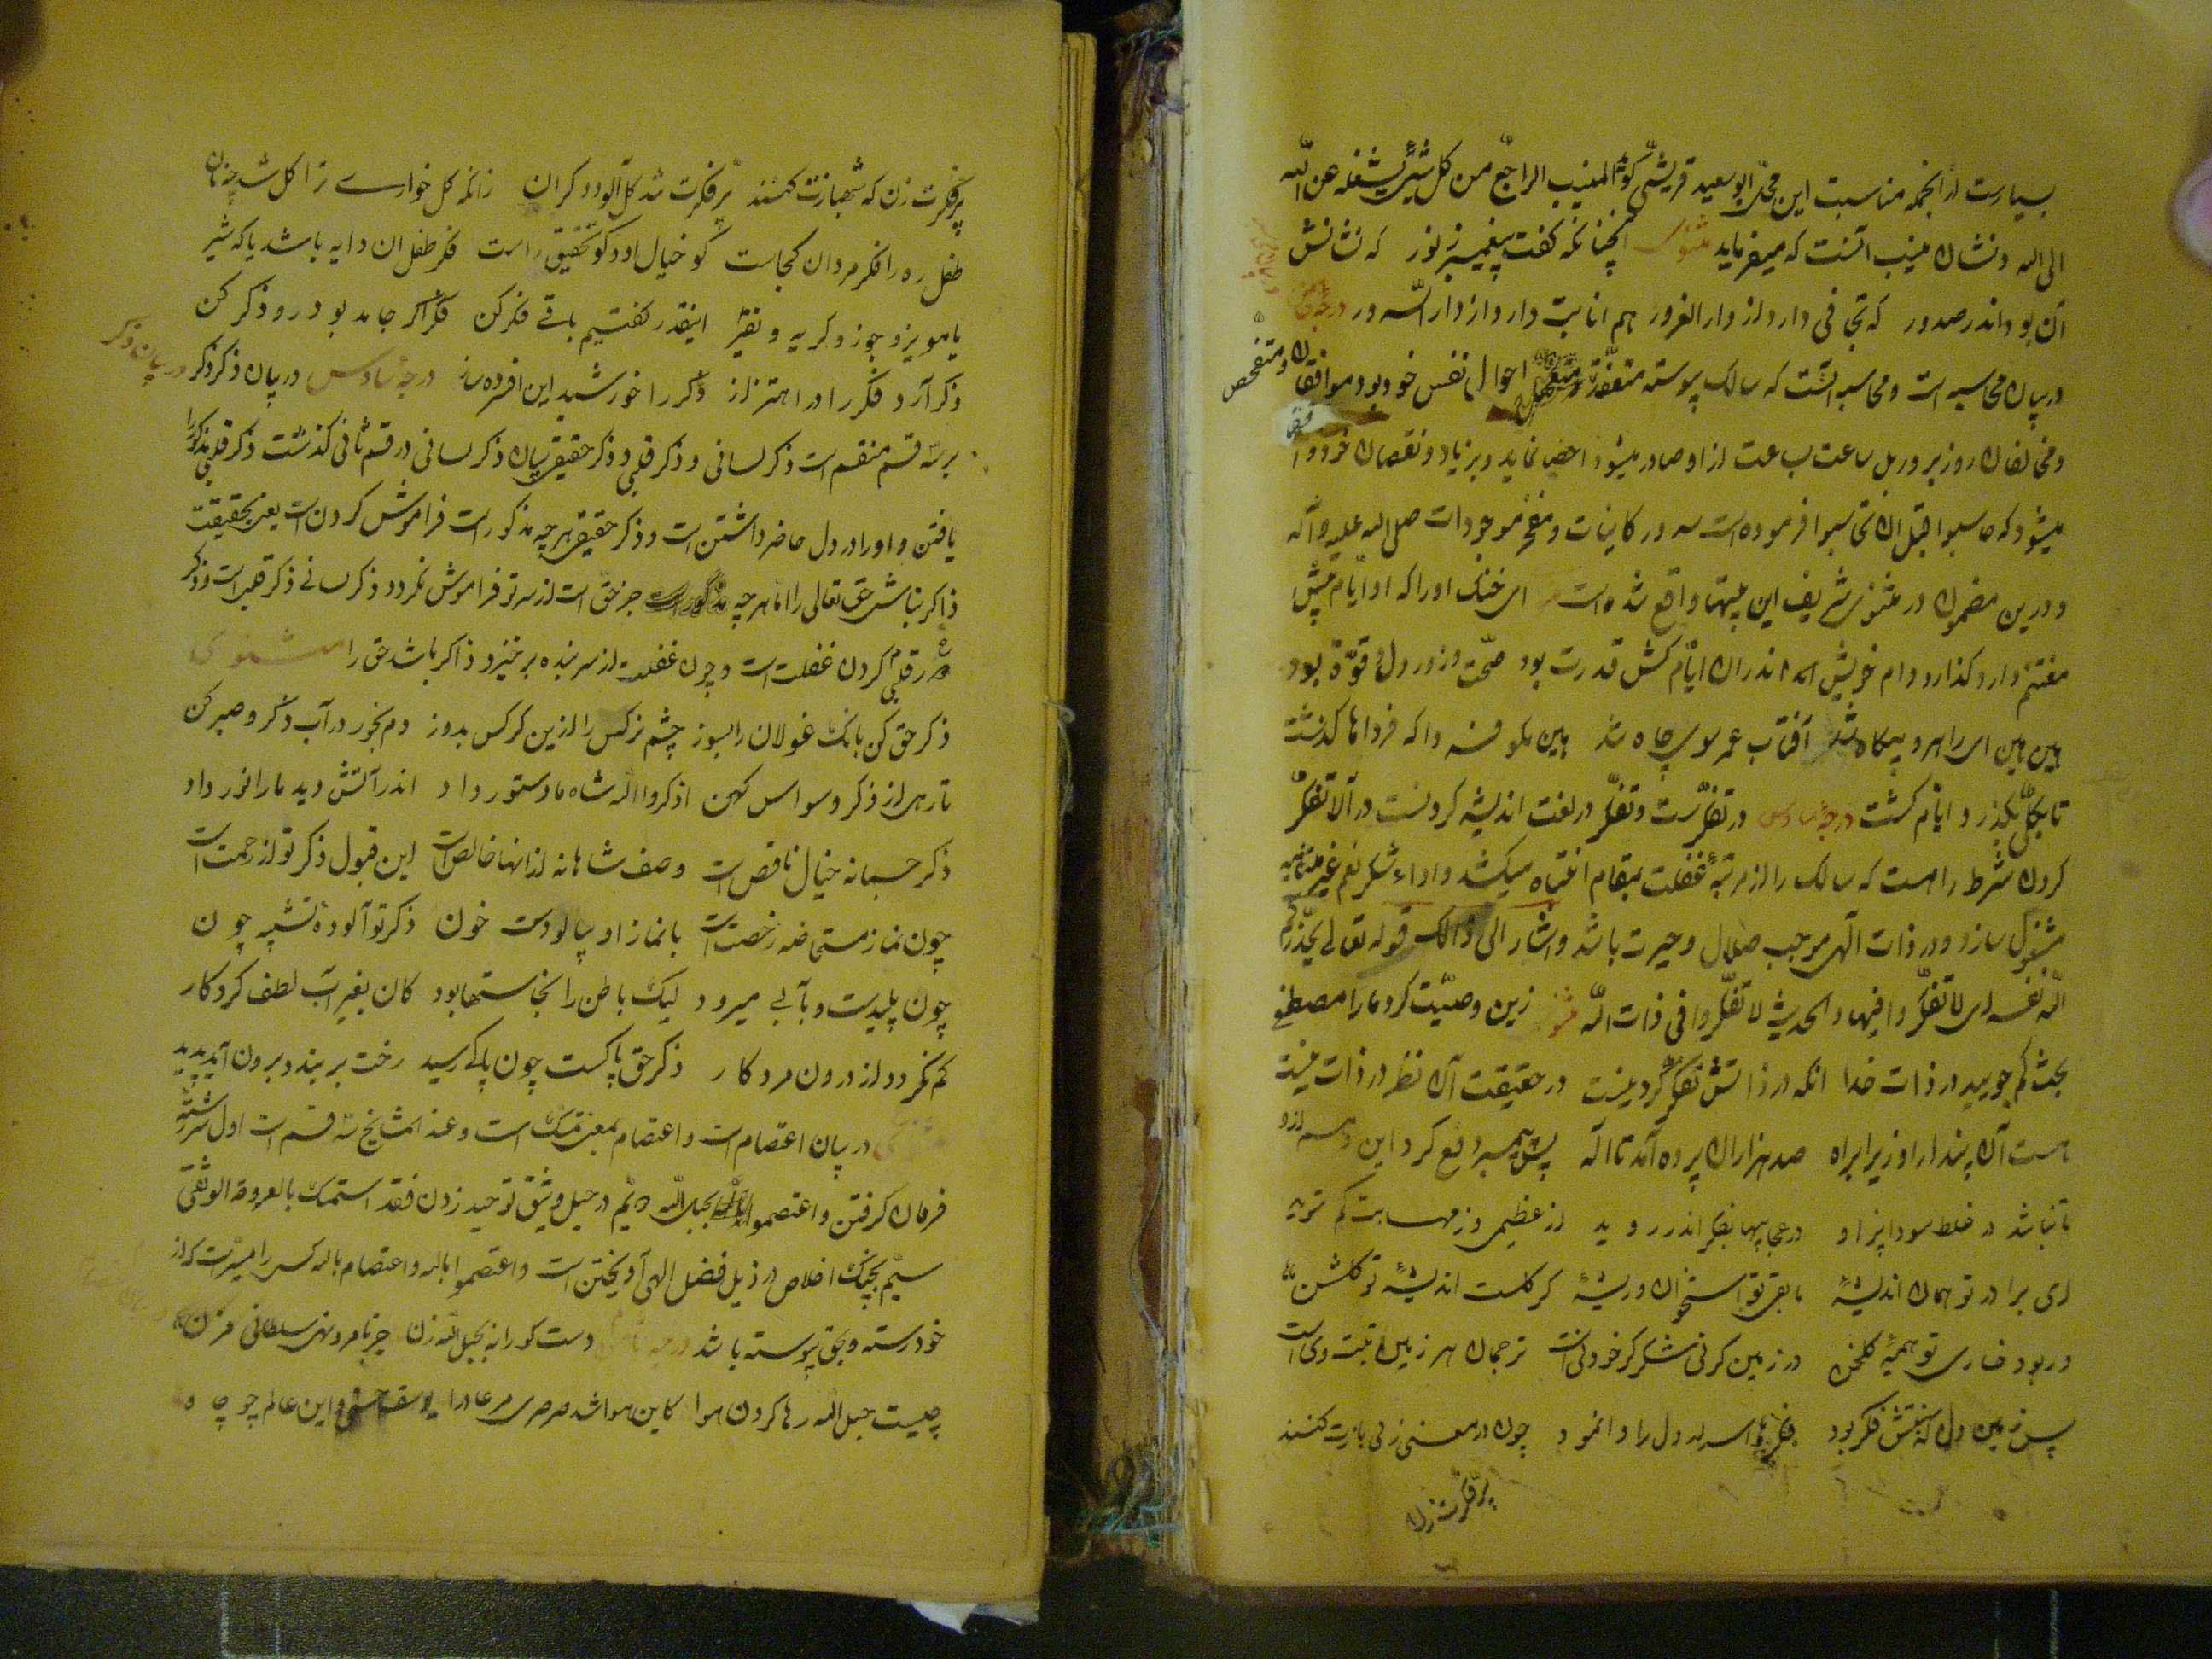 بسیارست ازانجمله مناسبت این محل ابو سعید قریشی گوید المنیب الراجع من کل شئ یشغله عن الله
الی الله و نشان منیب آنست که میفرماید مثنوی آنچنانکه گفت پیغمبر ز نور که نشانش
آن بود اندر صدور که تجافی دارد از دار الغرور هم انابت دارد از دار السرور درجه
در بیان محاسبه است و محاسبه آنست که سالک پیوسته متفقد احوال نفس خود بود و موافقات
و متفحص
و مخالفات روز بروز بل ساعت بساعت از او صادر میشود احصا نماید و بزیاد و نقصان خود
میشود که حاسبوا قبل ان تحاسبوا فرموده است سرور کاینات و مفخر موجودات صلی الله علیه و آله
و درین مضمون در مثنوی شریف این بیتها واقع شده است ای خنک اورا که او ایام پیش
مغتنم دارد گذارد وام خویش اندران ایام کش قدرت بود صحت و زور دل و قوة بود
هین هین ای راهرو بیگاه شد آفتاب عمر سوی چاه شد هین مگو فردا که فرداها گذشت
تا بکلی نگذرد ایام کشت درجه سادس در تفکرست و تفکر در لغت اندیشه کردنست در آلا تفکر
کردن شرط راهست که سالک را از مرتبه غفلت بمقام انتباه میکشد و اداء شکر نعم غیر متناهیه
مشغول سازد و در ذات الهی موجب ضلال و حیرت باشد و اشار الی ذالک قوله تعالی یحذرکم
الله نفسه ای لا تفکروا فیها و الحدیث لا تفکروا فی ذات الله مثنوی زین وصیت کرد مارا مصطفی
بحث کم جویید در ذات خدا انکه در ذاتش تفکر کردنیست در حقیقت آن نظر در ذات نیست
هست آن پندار او زیرا براه صد هزاران پرده آمد تا اله پس پیمبر دفع کرد این وهم از و
تا نباشد در غلط سودا پز او در عجایبها بفکر اندر روید از عظیمی وز مهابت گم شوید
ای برادر تو همان اندیشه مابقی تو استخوان و ریشه گر گلست اندیشه تو گلشنی
ور بود خاری تو همیه گلخن در زمین گر نی شکر گر خود نی است ترجمان هر زمین نبت وی است
پس زمین دل که نبتش فکر بود فکرها اسرار دل را وانمود چون در معنی زنی بازت کنند
پر فکرت زن
پر فکرت زن که شهبازت کنند پر فکرت شد گل آلود و گران زانکه گل خواری ترا گل شد چو نان
طفل ره را فکر مردان کجاست کو خیال او و کو تحقیق راست فکر طفلان دایه باشد یا که شیر
یا مویز و جوز و گریه و نفیر اینقدر گفتیم باقی فکر کن فکر اگر جامد بود رو ذکر کن
ذکر آرد فکر را در اهتزاز ذکر را خورشید این افسرده ساز درجه سادس در بیان ذکر و ذکر
در بیان ذکر
بر سه قسم منقسم است ذکر لسانی و ذکر قلبی و ذکر حقیقی بیان ذکر لسانی در قسم ثانی گذشت ذکر قلبی مذکور را
یافتن و اورا در دل حاضر داشتن است و ذکر حقیقی هرچه مذکور است فراموش کردن است یعنی بحقیقت
ذاکر نباشی حق تعالی را تا هرچه جز حق است از سر تو فراموش نگردد ذکر لسانی ذکر قلبی است و ذکر
قلبی دور کردن غفلت است و چون غفلت از سر بنده برخیزد ذاکر باشد حق را مثنوی
ذکر حق کن بانک غولان را بسوز چشم نرگس را ازین کرکس بدوز دم بخور در آب ذکر و صبر کن
تا رهی از ذکر و وسواس کهن اذکروا الله شاه ما دستور داد اندر آتش دید مارا نور داد
ذکر جسمانه خیال ناقص است وصف شاهانه از انها خالص است این قبول ذکر تو از رحمت است
چون نماز مستحاضه رخصت است با نماز او بیالودست خون ذکر تو آلوده تشبیه چون
چون پلیدست و بآبی میرود لیک باطن را نجاستها بود کان بغیر آب لطف کردگار
کم نگردد از درون مرد کار ذکر حق پاکست چون پاکی رسید رخت بربندد برون آید پلید
در بیان اعتصام است و اعتصام بمعنی تمسک است و عند المشایخ سه قسم است اول سر رشته
فرمان گرفتن و اعتصموا بحبل الله دویم در حبل وثیق توحید زدن فقد استمسک بالعروة الوثقی
سیم بچنک اخلاص در ذیل فضل الهی آویختن است و اعتصموا بالله و اعتصام بالله کسی را میسر است که از
خود رسته و بحق پیوسته باشد درجه دست کورانه بحبل الله زن جز بامر و نهی سلطانی مزن
چیست حبل الله رها کردن هوا کاین هوا شد صرصری مر عاد را یوسف حسنی و این عالم چو چاه